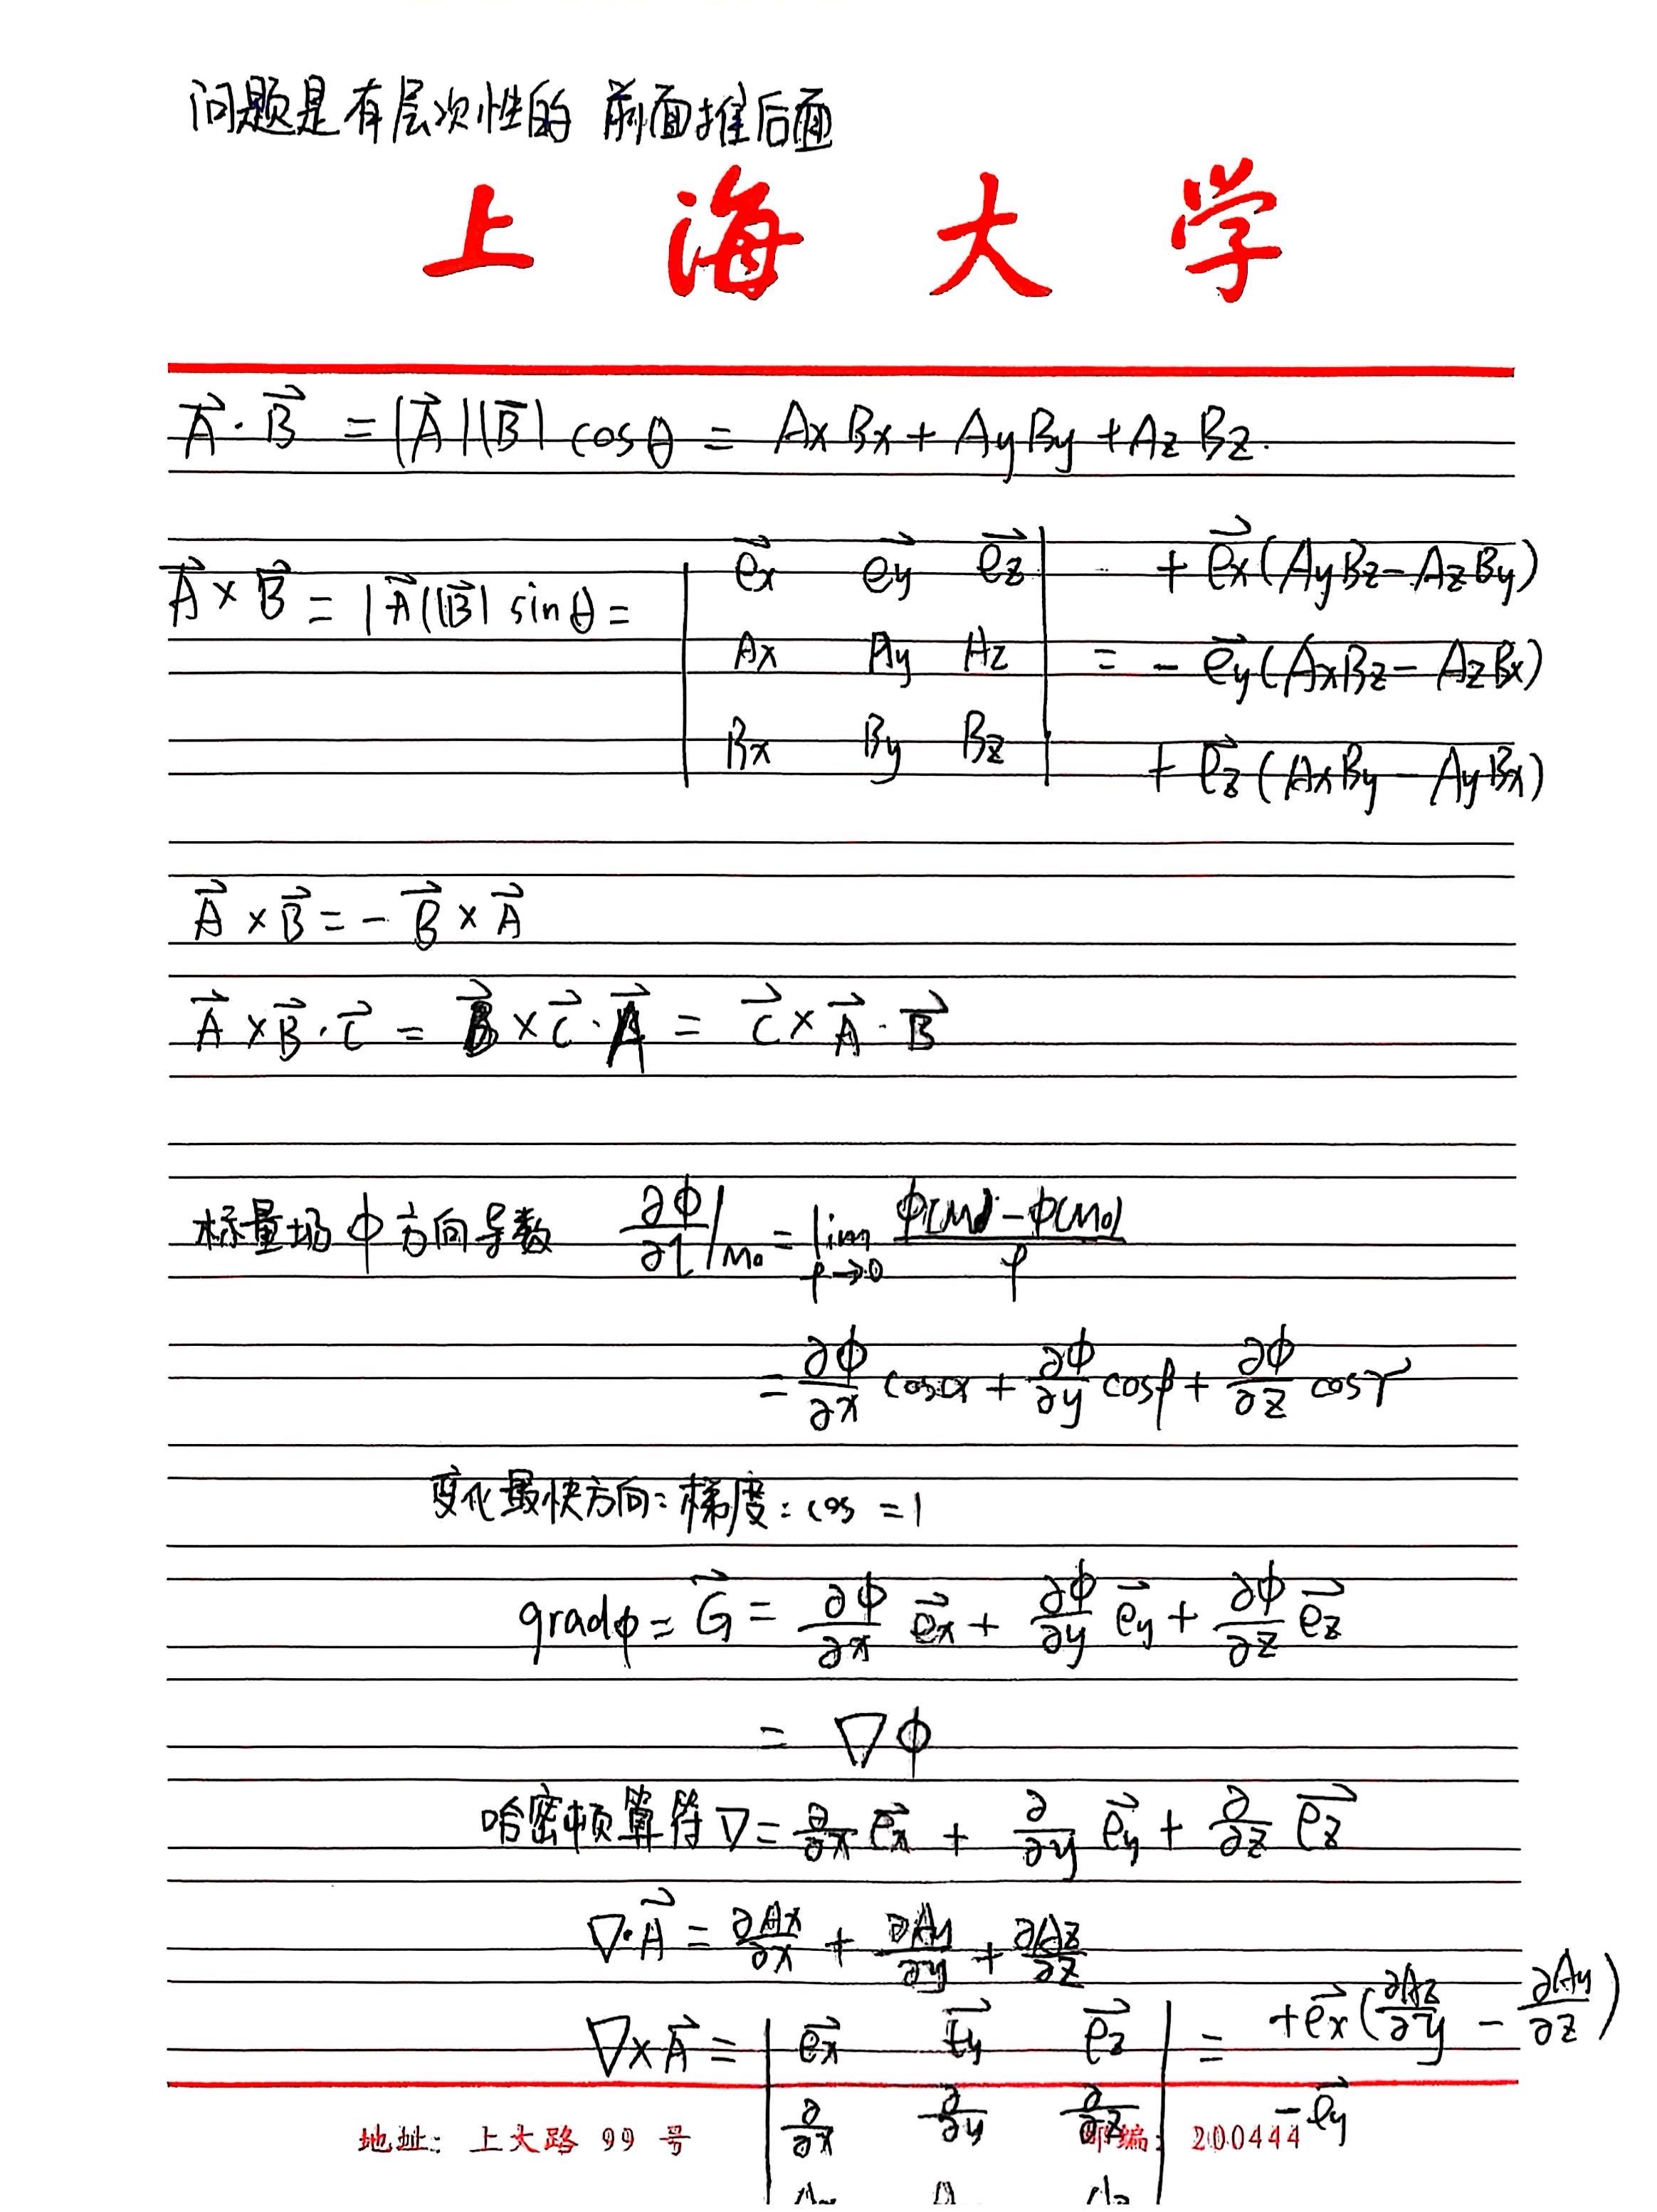 问题是有层次性的 前面推后面
上海大学
$\vec{A}\cdot\vec{B} = |\vec{A}||\vec{B}|\cos\theta = A_xB_x + A_yB_y + A_zB_z.$
$\vec{A}\times\vec{B} = |\vec{A}||\vec{B}|\sin\theta = \begin{vmatrix} \vec{e_x} & \vec{e_y} & \vec{e_z} \\ A_x & A_y & A_z \\ B_x & B_y & B_z \end{vmatrix} = +\vec{e_x}(A_yB_z - A_zB_y)$
$-\vec{e_y}(A_xB_z - A_zB_x)$
$+\vec{e_z}(A_xB_y - A_yB_x)$
$\vec{A}\times\vec{B} = -\vec{B}\times\vec{A}$
$\vec{A}\times\vec{B}\cdot\vec{C} = \vec{B}\times\vec{C}\cdot\vec{A} = \vec{C}\times\vec{A}\cdot\vec{B}$
标量场 φ 方向导数 $\frac{\partial\phi}{\partial l}|_{M_0} = \lim_{\rho\to0}\frac{\phi(M)-\phi(M_0)}{\rho}$
$= \frac{\partial\phi}{\partial x}\cos\alpha + \frac{\partial\phi}{\partial y}\cos\beta + \frac{\partial\phi}{\partial z}\cos\gamma$
变化最快方向：梯度：cos = 1
$grad\phi = \vec{G} = \frac{\partial\phi}{\partial x}\vec{e_x} + \frac{\partial\phi}{\partial y}\vec{e_y} + \frac{\partial\phi}{\partial z}\vec{e_z}$
$= \nabla\phi$
哈密顿算符 $\nabla = \frac{\partial}{\partial x}\vec{e_x} + \frac{\partial}{\partial y}\vec{e_y} + \frac{\partial}{\partial z}\vec{e_z}$
$\nabla\cdot\vec{A} = \frac{\partial A_x}{\partial x} + \frac{\partial A_y}{\partial y} + \frac{\partial A_z}{\partial z}$
$\nabla\times\vec{A} = \begin{vmatrix} \vec{e_x} & \vec{e_y} & \vec{e_z} \\ \frac{\partial}{\partial x} & \frac{\partial}{\partial y} & \frac{\partial}{\partial z} \end{vmatrix} = +\vec{e_x}(\frac{\partial A_z}{\partial y} - \frac{\partial A_y}{\partial z})$
$-\vec{e_y}$
地址：上大路 99 号 邮编：200444